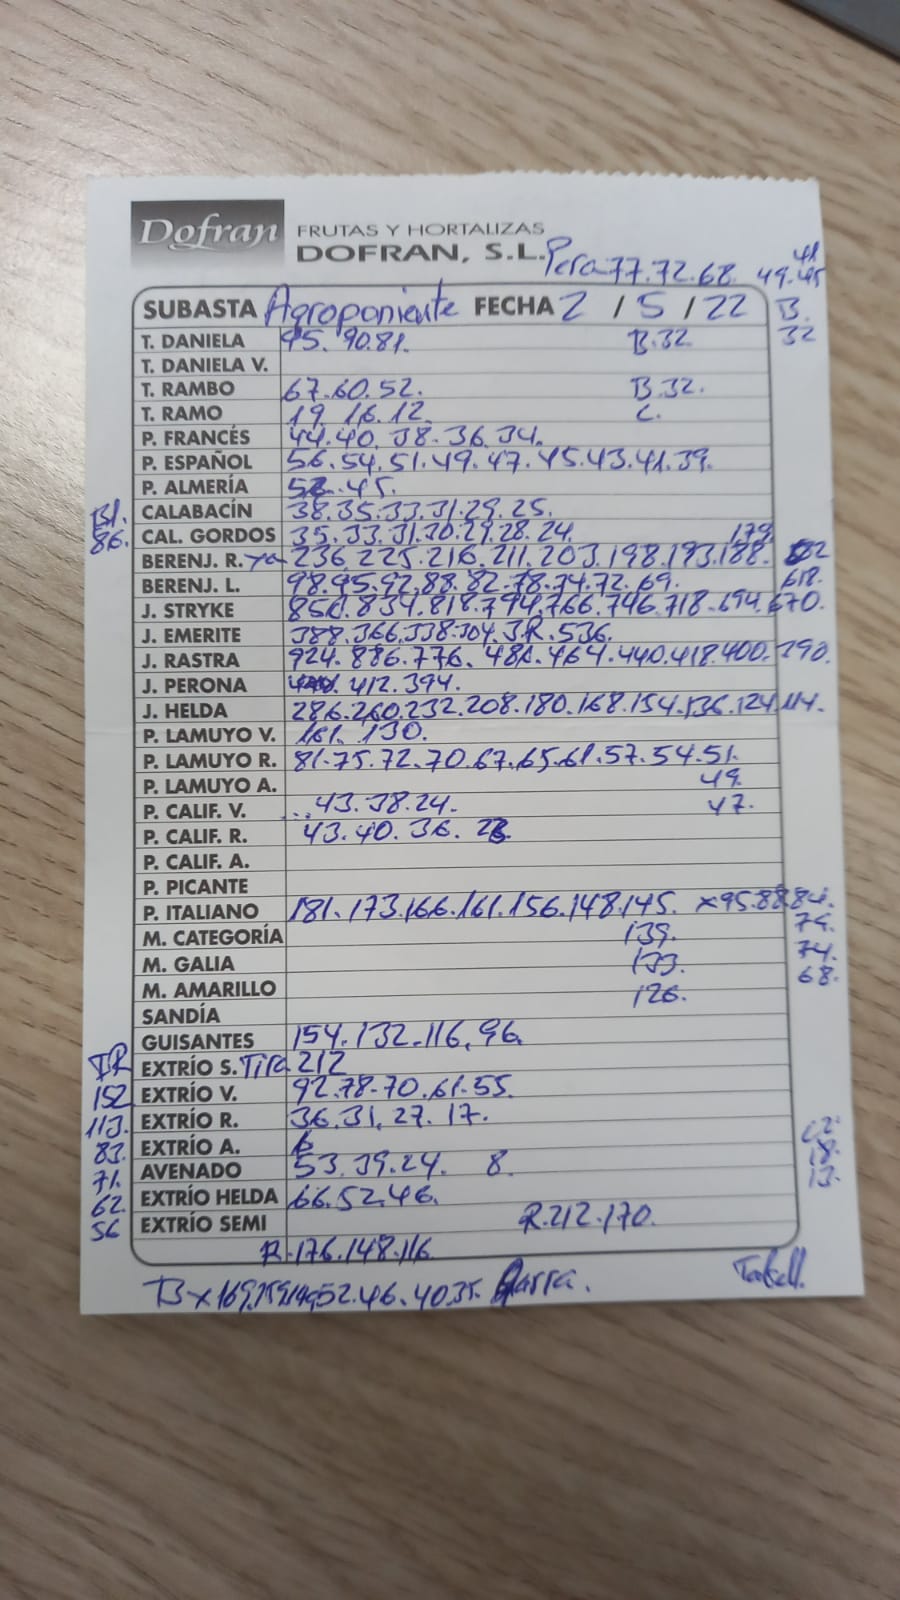 Dofran FRUTAS Y HORTALIZAS
DOFRAN, S.L. Pera 77.72.68. 49.45
41
SUBASTA Agroponiente FECHA 2 / 5 / 22 B.
32
T. DANIELA 95. 90.81. B.32
T. DANIELA V.
T. RAMBO 67.60.52. B.32.
T. RAMO 19 16.12. C.
P. FRANCÉS 44.40. 38.36.34.
P. ESPAÑOL 56.54.51.49.47.45.43.41.39.
P. ALMERÍA 45.
CALABACÍN 38.35.33.31.29.25.
86. CAL. GORDOS 35.33.31.30.29.28.24. 179
BERENJ. R. 236.225.216.211.203.198.193.188.
BERENJ. L. 98.95.92.88.82.78.74.72.69. 618.
J. STRYKE 850.834.818.794.766.746.718.694.670.
J. EMERITE 388.366.338.304.3.R.536.
J. RASTRA 924.886.776. 464.440.418.400.390.
J. PERONA 412.394.
J. HELDA 286.260.232.208.180.168.154.136.124.114.
P. LAMUYO V. 161. 130.
P. LAMUYO R. 81.75.72.70.67.65.61.57.54.51.
P. LAMUYO A. 49.
P. CALIF. V. 43.38.24. 47.
P. CALIF. R. 43.40.36.
P. CALIF. A.
P. PICANTE
P. ITALIANO 181.173.166.161.156.148.145. x95.88.84.
M. CATEGORÍA 139. 79.
M. GALIA 133. 74.
M. AMARILLO 126. 68.
SANDÍA
GUISANTES 154.132.116.96.
EXTRÍO S. Tira 212
152 EXTRÍO V. 92.78.70.61.55.
113. EXTRÍO R. 36.31.27.17.
83. EXTRÍO A.
71. AVENADO 53.39.24. 8. 18.
62. EXTRÍO HELDA 66.52.46. 13.
56 EXTRÍO SEMI R.212.170.
R.176.148.116
B x169.159.149.52.46.40.35. Garra.